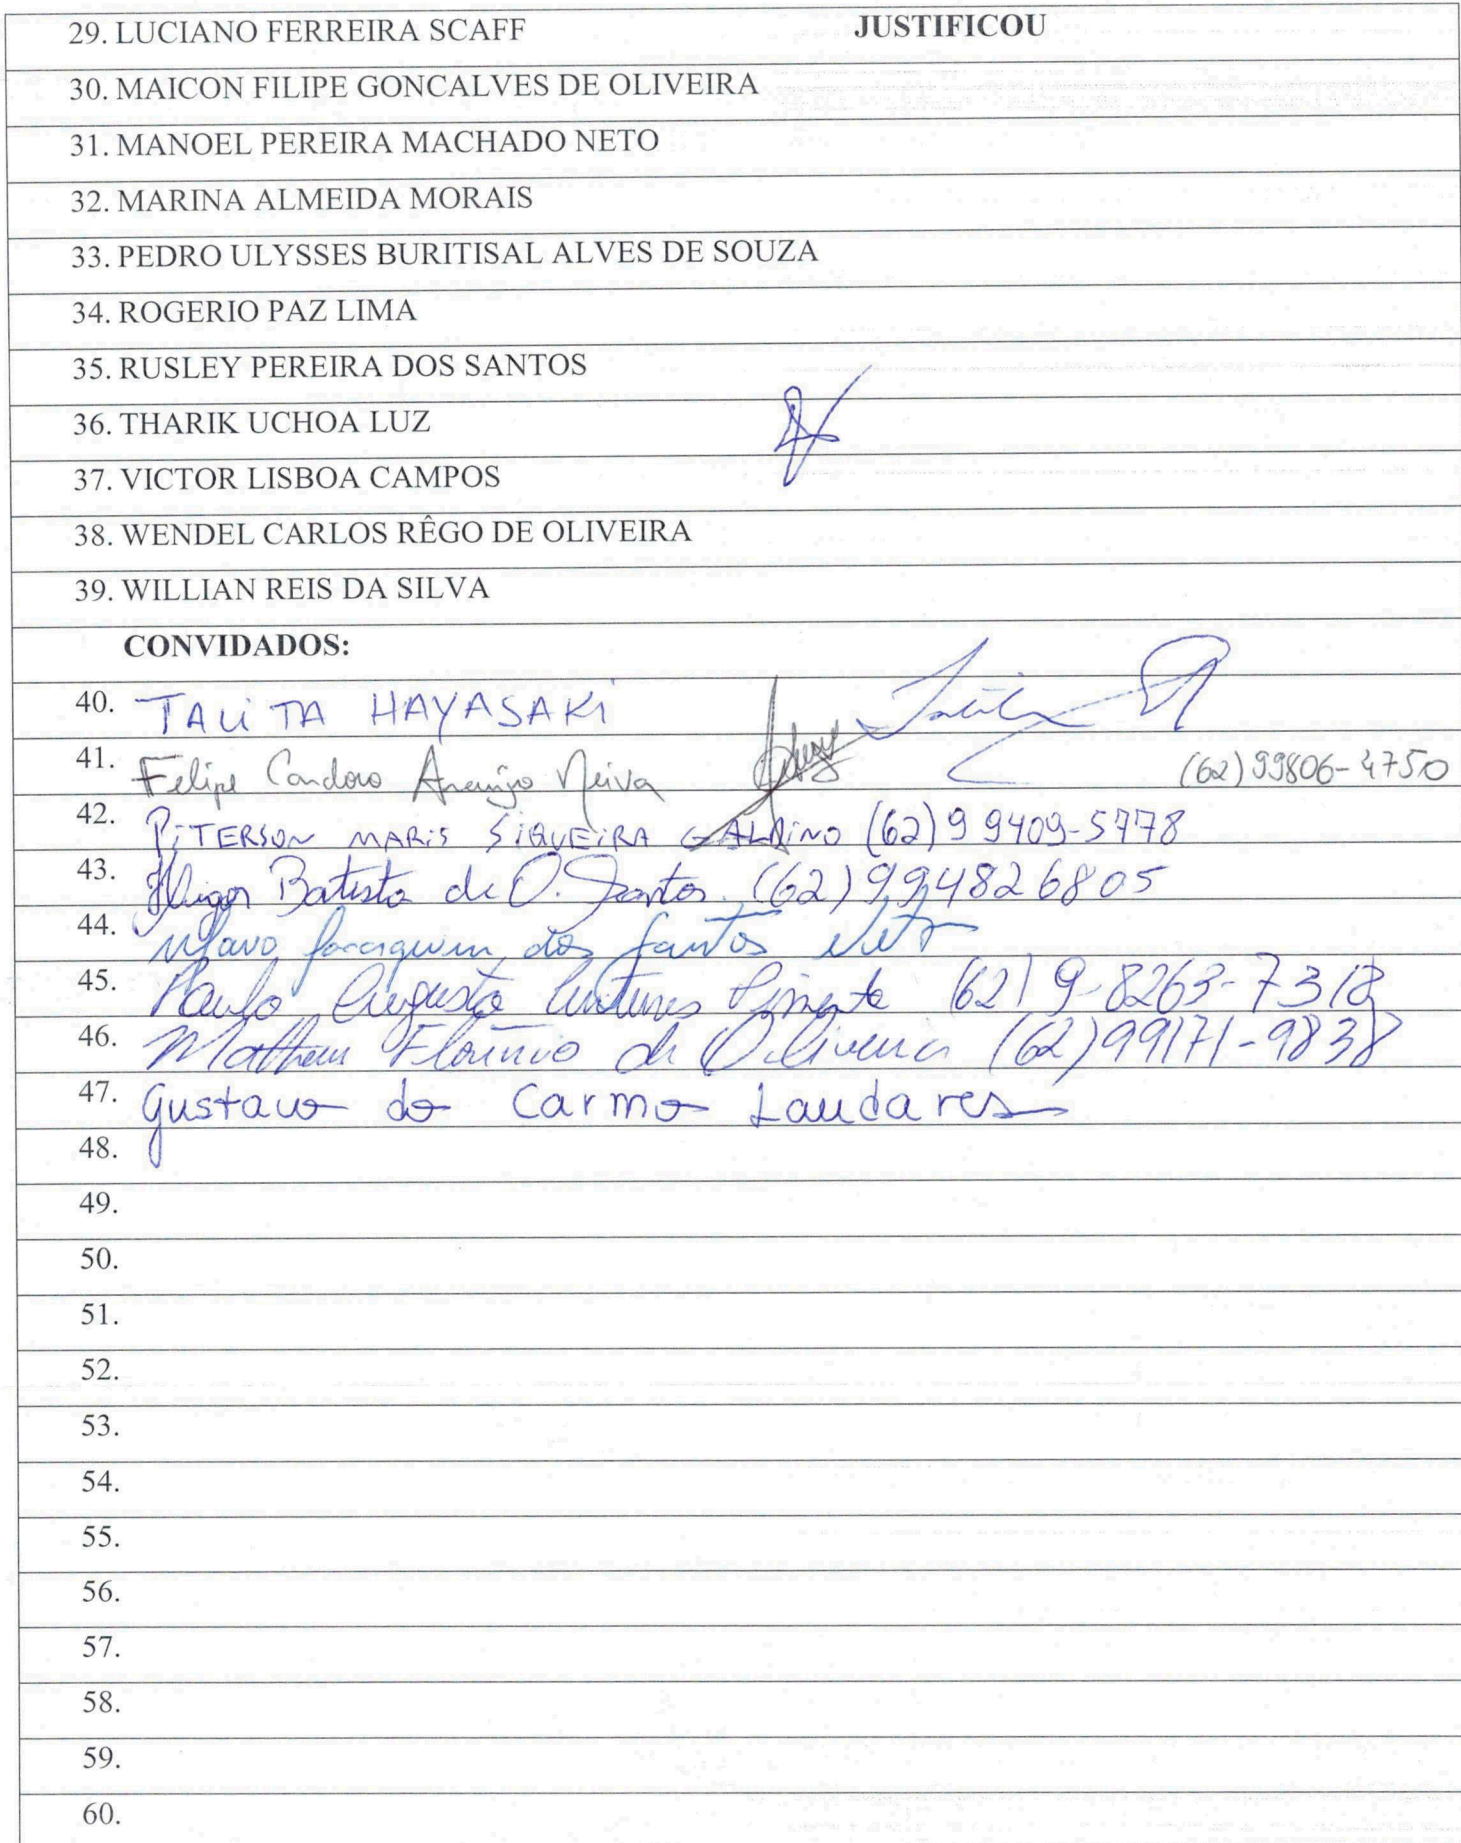 29. LUCIANO FERREIRA SCAFF JUSTIFICOU
30. MAICON FILIPE GONCALVES DE OLIVEIRA
31. MANOEL PEREIRA MACHADO NETO
32. MARINA ALMEIDA MORAIS
33. PEDRO ULYSSES BURITISAL ALVES DE SOUZA
34. ROGERIO PAZ LIMA
35. RUSLEY PEREIRA DOS SANTOS
36. THARIK UCHOA LUZ
37. VICTOR LISBOA CAMPOS
38. WENDEL CARLOS RÊGO DE OLIVEIRA
39. WILLIAN REIS DA SILVA
CONVIDADOS:
40. TALITA HAYASAKI
41. Felipe Cardoso Araujo Neiva (62) 99806-4750
42. PITERSON MARIS SIQUEIRA GALDINO (62) 9 9409-5778
43. Batista de O. Santos (62) 994826805
44. dos Santos Neto
45. Paulo Augusto Antunes Pimenta (62) 9-8263-7318
46. Matheus Florêncio de Oliveira (62) 99171-9838
47. Gustavo do Carmo Laudares
48.
49.
50.
51.
52.
53.
54.
55.
56.
57.
58.
59.
60.